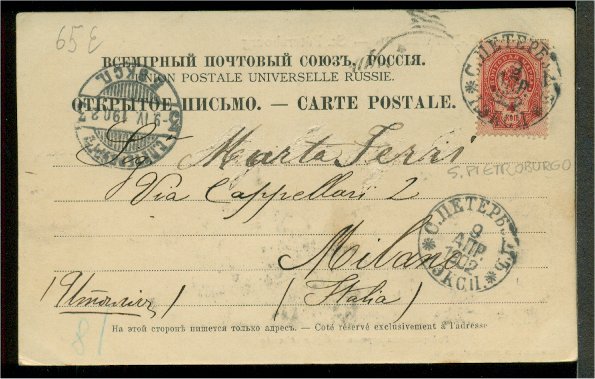 65 E
ВСЕМІРНЫЙ ПОЧТОВЫЙ СОЮЗЪ. РОССІЯ.
UNION POSTALE UNIVERSELLE RUSSIE.
ОТКРЫТОЕ ПИСЬМО. — CARTE POSTALE.
С.ПЕТЕРБ
-9.IV.1902
Marta Ferri
S. PIETROBURGO
Via Cappellari 2
С.ПЕТЕРБ
9
АПР.
1902
ЭКСП.
Milano
(Италия) (Italia)
8/
На этой сторонѣ пишется только адресъ. — Coté réservé exclusivement à l'adresse